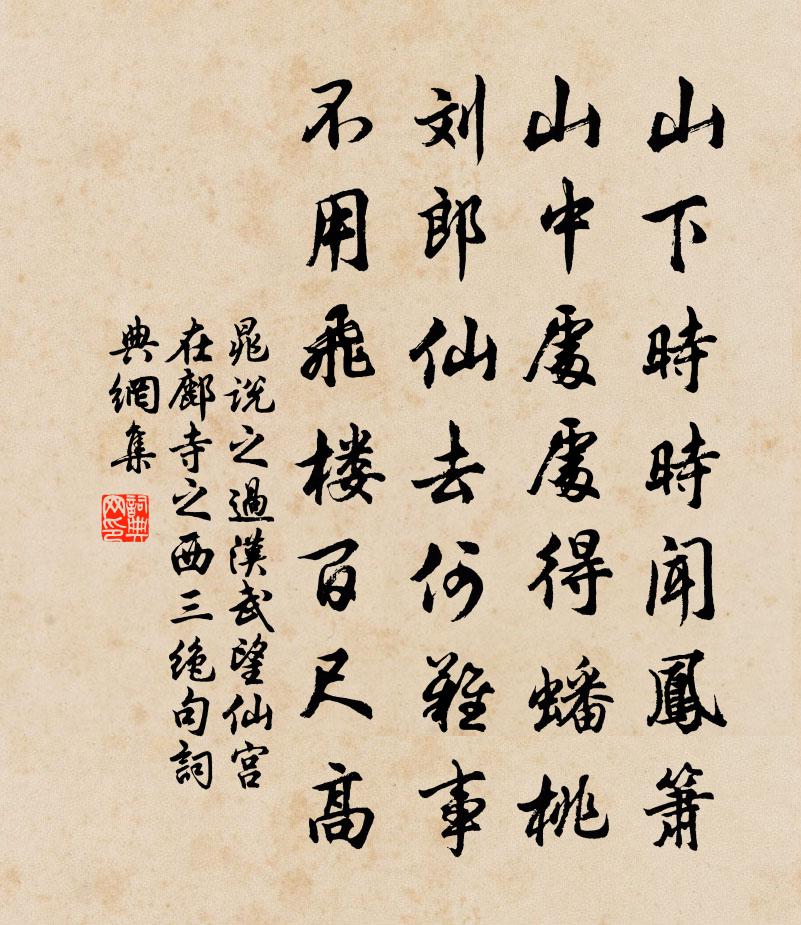 山下時時聞鳳簫
山中處處得蟠桃
刘郎仙去何難事
不用飛楼百尺高
晁說之過漢武望仙宮
在鄜寺之西三絕句詞
典網集
詞典
网印